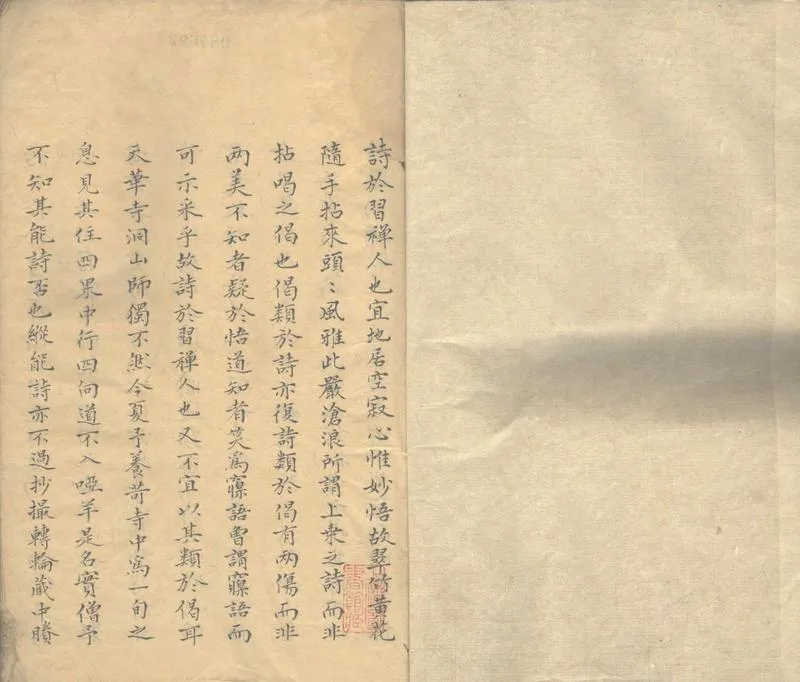 詩於習禅人也宜地居空寂心惟妙悟故翠竹黃花
隨手拈來頭〻風雅此嚴滄浪所謂上乗之詩而非
拈喝之偈也偈類於詩亦復詩類於偈有两傷而非
两美不知者疑於悟道知者笑為寱語曾謂寱語而
可示采乎故詩於習禅人也又不宜以其類於偈耳
天華寺洞山師獨不然今夏予養苛寺中為一旬之
息見其住四果中行四向道不入啞羊是名實僧予
不知其能詩否也縱能詩亦不過抄撮轉輪藏中賸